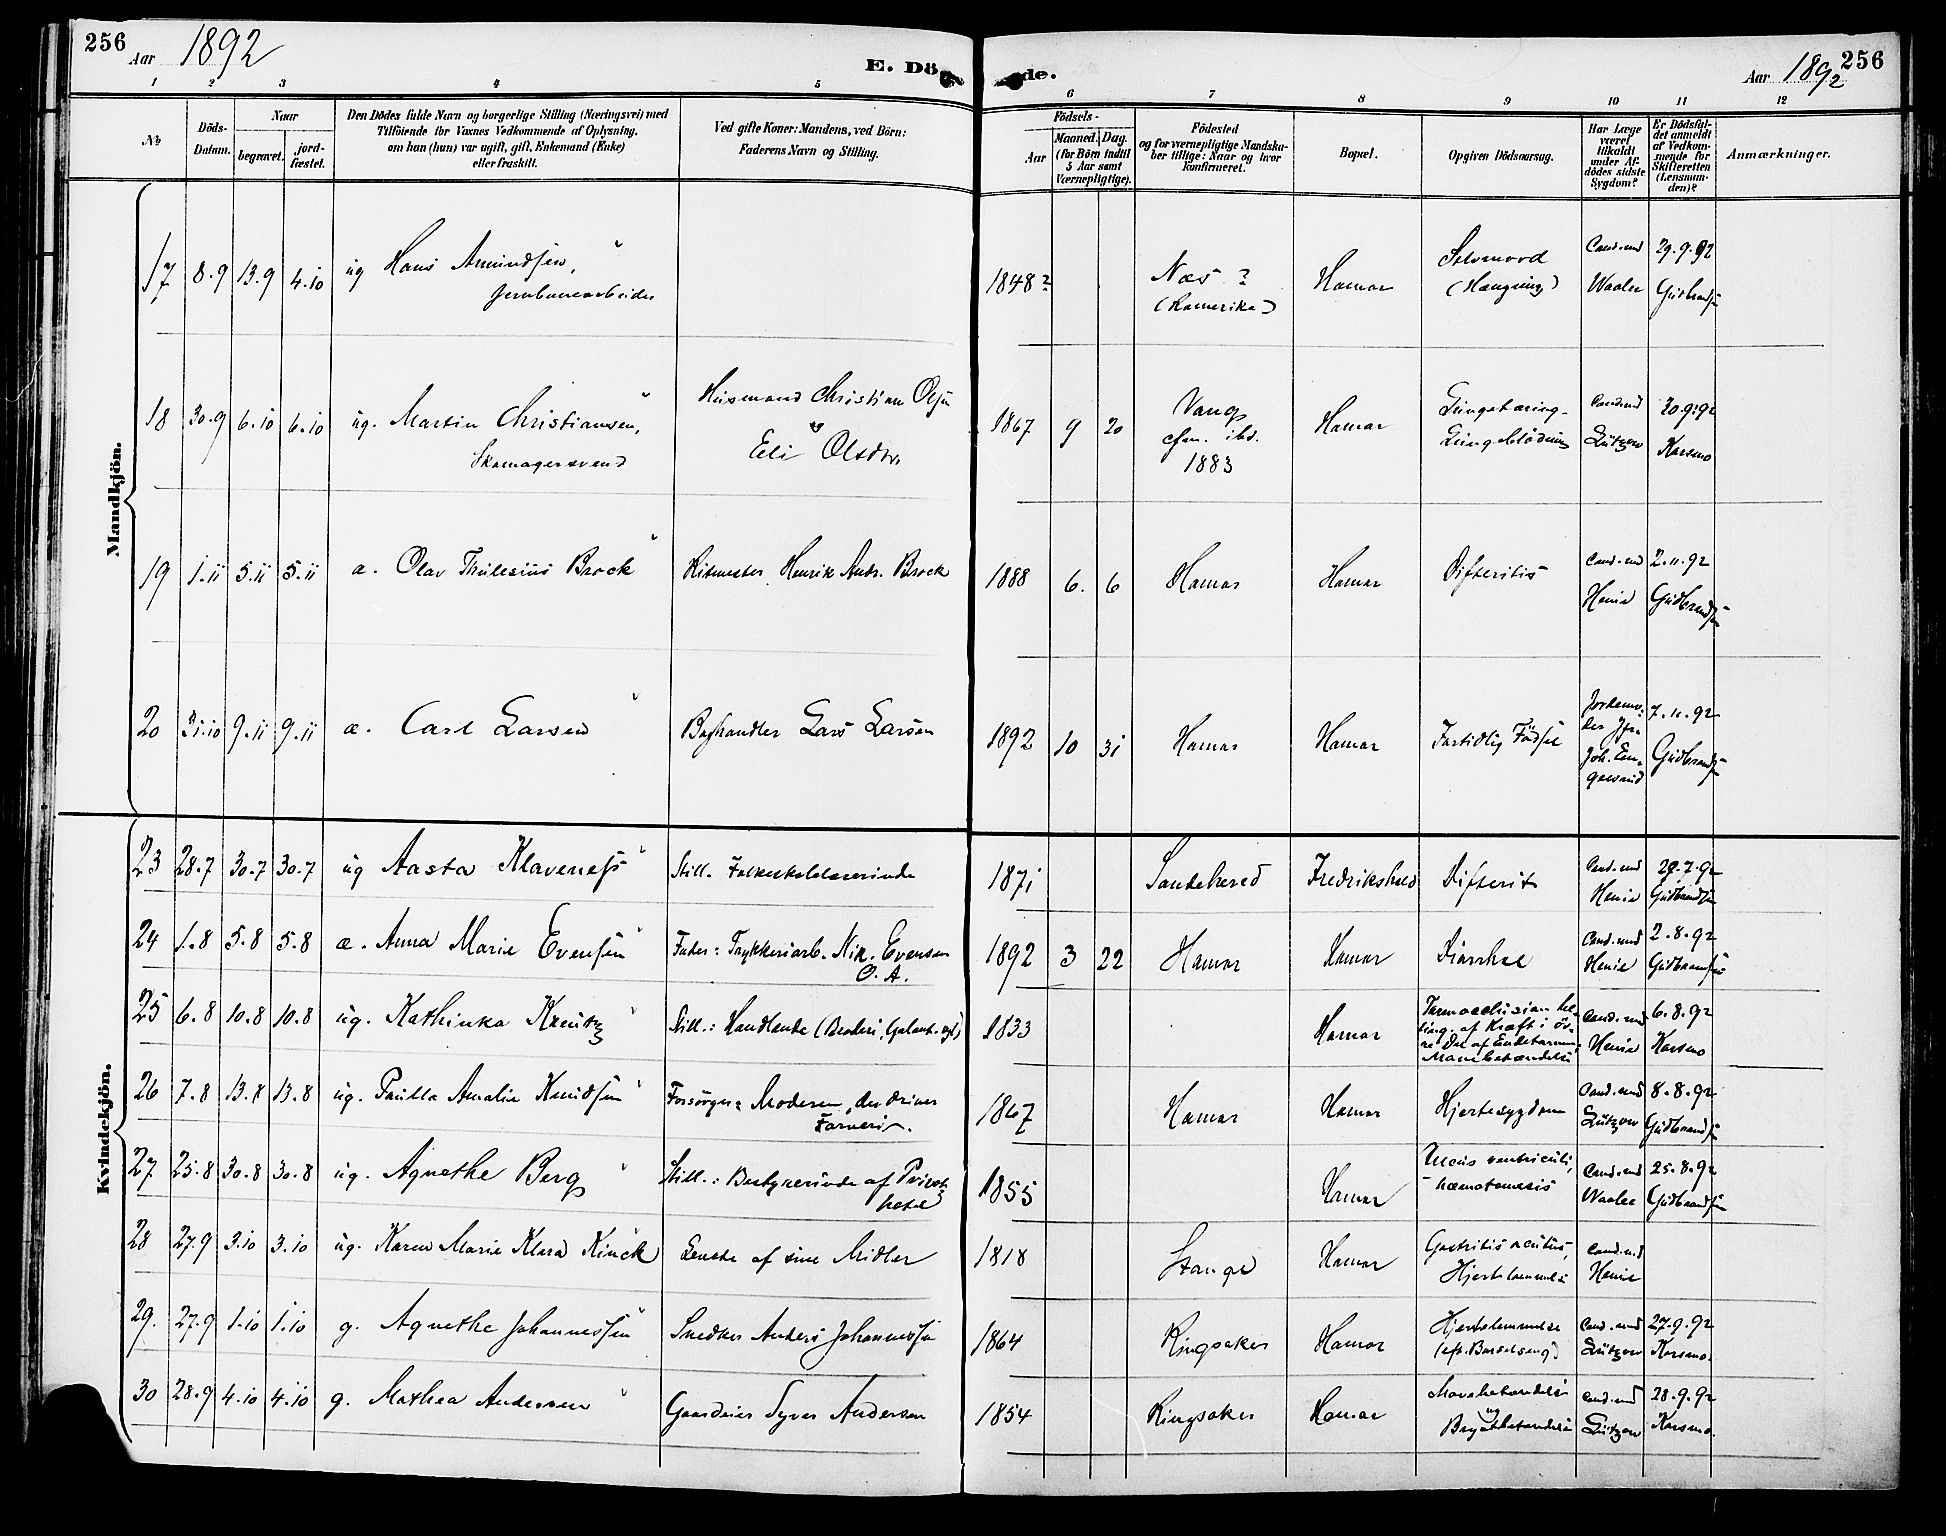 256 Aar 1892
E. Dö de.
Aar 1892 256
1 2 3 4 5 6 7 8 9 10 11 12
No
Döds-Datum.
Naar
begravet. jord-fæstet.
Den Dödes fulde Navn og borgerlige Stilling (Næringsvei) med
Tilföiende for Voxnes Vedkommende af Oplysning,
om han (hun) var ugift, gift, Enkemand (Enke)
eller fraskilt.
Ved gifte Koner: Mandens, ved Börn:
Faderens Navn og Stilling.
Födsels-
Aar
Maaned. Dag.
(for Börn indtil
5 Aar samt
Værnepligtige).
Födested
og for værnepligtige Mandska-
ber tillige: Naar og hvor
konfirmeret.
Bopæl.
Opgiven Dödsaarsag.
Har Læge
været
tilkaldt
under Af-
dödes sidste
Sygdom?
Er Dödsfal-
det anmeldt
af Vedkom-
mende for
Skifteretten
(Lensman-
den)?
Anmærkninger.
Mandkjön.
17 8.9 13.9 4.10 ug Hans Amundsen, 1848? Næs ? Hamar Selvmord Cand.med 29.9.92
Jernbanearbeider (Romerike) (Hængning) Waaler Gudbrandsen
18 30.9 6.10 6.10 ug. Martin Christiansen, Husmand Christian Olsen 1867 9 20 Vang Hamar Lungetæring- Cand.med 30.9.92
Skomagersvend og Eli Olsdtr. cfm. ibd. Lungeblödning Lützow Karsmo
1883
19 1.11 5.11 5.11 æ. Olav Thulesius Brock Ritmester Henrik Andr. Brock 1888 6. 6 Hamar Hamar Difteritis Cand.med 2.11.92
Henie Gudbrandsen
20 31.10 9.11 9.11 æ. Carl Larsen Boghandler Lars Larsen 1892 10 31 Hamar Hamar Fortidlig Födsel Jordemo- 7.11.92
der Joh. Gudbrandsen
Kvindekjön.
23 28.7 30.7 30.7 ug Aasta Klaveness Still. Folkeskolelærerinde 1871 Sandeherred Fredrikshald Difterit Cand.med 29.7.92
Henie Gudbrandsen
24 1.8 5.8 5.8 æ. Anna Marie Evensen Fader: Trykkeriarb. Nik. Evensen 1892 3 22 Hamar Hamar Diarrhee Cand.med 2.8.92
O. A. Henie Gudbrandsen
25 6.8 10.8 10.8 ug. Kathinka Kreutz Still.: Handlende (Broderi, Galant. ogl.) 1833 Hamar Tarmocclusion Cand.med 6.8.92
ting. af Kræft i öv-
re Del af Endetarmen; Henie Karsmo
Mavebetændelse
26 7.8 13.8 13.8 ug. Amalie Knudsen Forsörger: Moderen, der driver 1867 Hamar Hamar Hjertesygdom Cand.med 8.8.92
Farveri. Lützow Gudbrandsen
27 25.8 30.8 30.8 ug. Agnethe Berg Still.: Bestyrerinde af Privat- 1855 Hamar Ulcus ventriculi, Cand.med 25.8.92
hotel hæmatemesis Waaler Gudbrandsen
28 27.9 3.10 3.10 ug. Karen Marie Klara Kinck Levede af sine Midler 1818 Stange Hamar Gastritis acutus, Cand.med
Hjertelammelse Henie
29. 27.9 1.10 1.10 g. Agnethe Johannessen Snedker Anders Johannessen 1864 Ringsaker Hamar Hjertelammelse Cand.med 27.9.92
(eft. Barselseng) Lützow Karsmo.
30 28.9 4.10 4.10 g. Mathea Andersen Gaardeier Syver Andersen 1854 Ringsaker Hamar Mavebetændelse Cand.med 28.9.92
og Brystbetændelse Lützow Karsmo.